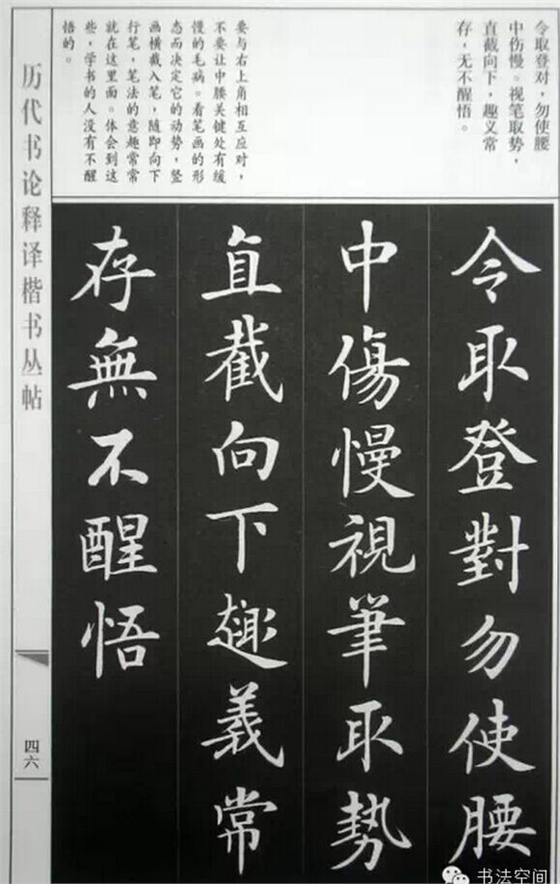 令取登对，勿使腰
中伤慢。视笔取势，
直截向下，趣义常
存，无不醒悟。
要与右上角相互应对，
不要让中腰关键处有缓
慢的毛病。看笔画的形
态而决定它的动势，竖
画横截入笔，随即向下
行笔，笔法的意趣常常
就在这里面。体会到这
些，学书的人没有不醒
悟的。
历代书论释译楷书丛帖
令取登對勿使腰
中傷慢視筆取勢
直截向下趣義常
存無不醒悟
四六
书法空间